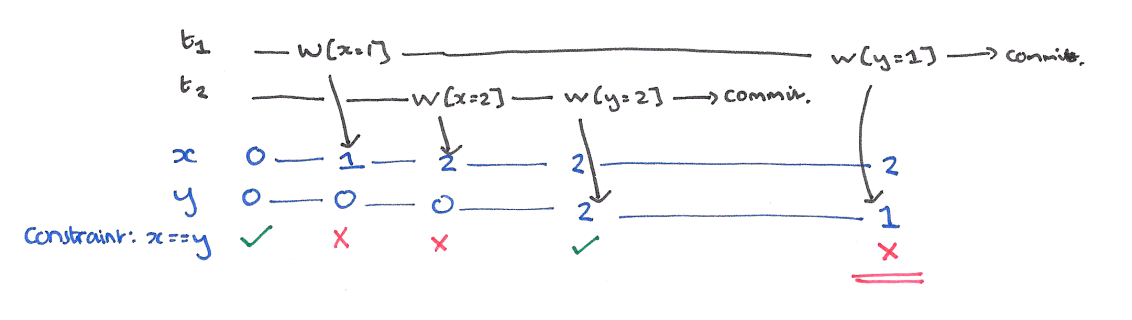 t1 w[x=1] w[y=1] commit.
t2 w[x=2] w[y=2] commit.
x 0 1 2 2 2
y 0 0 0 2 1
Constraint: x==y ✓ x x ✓ x